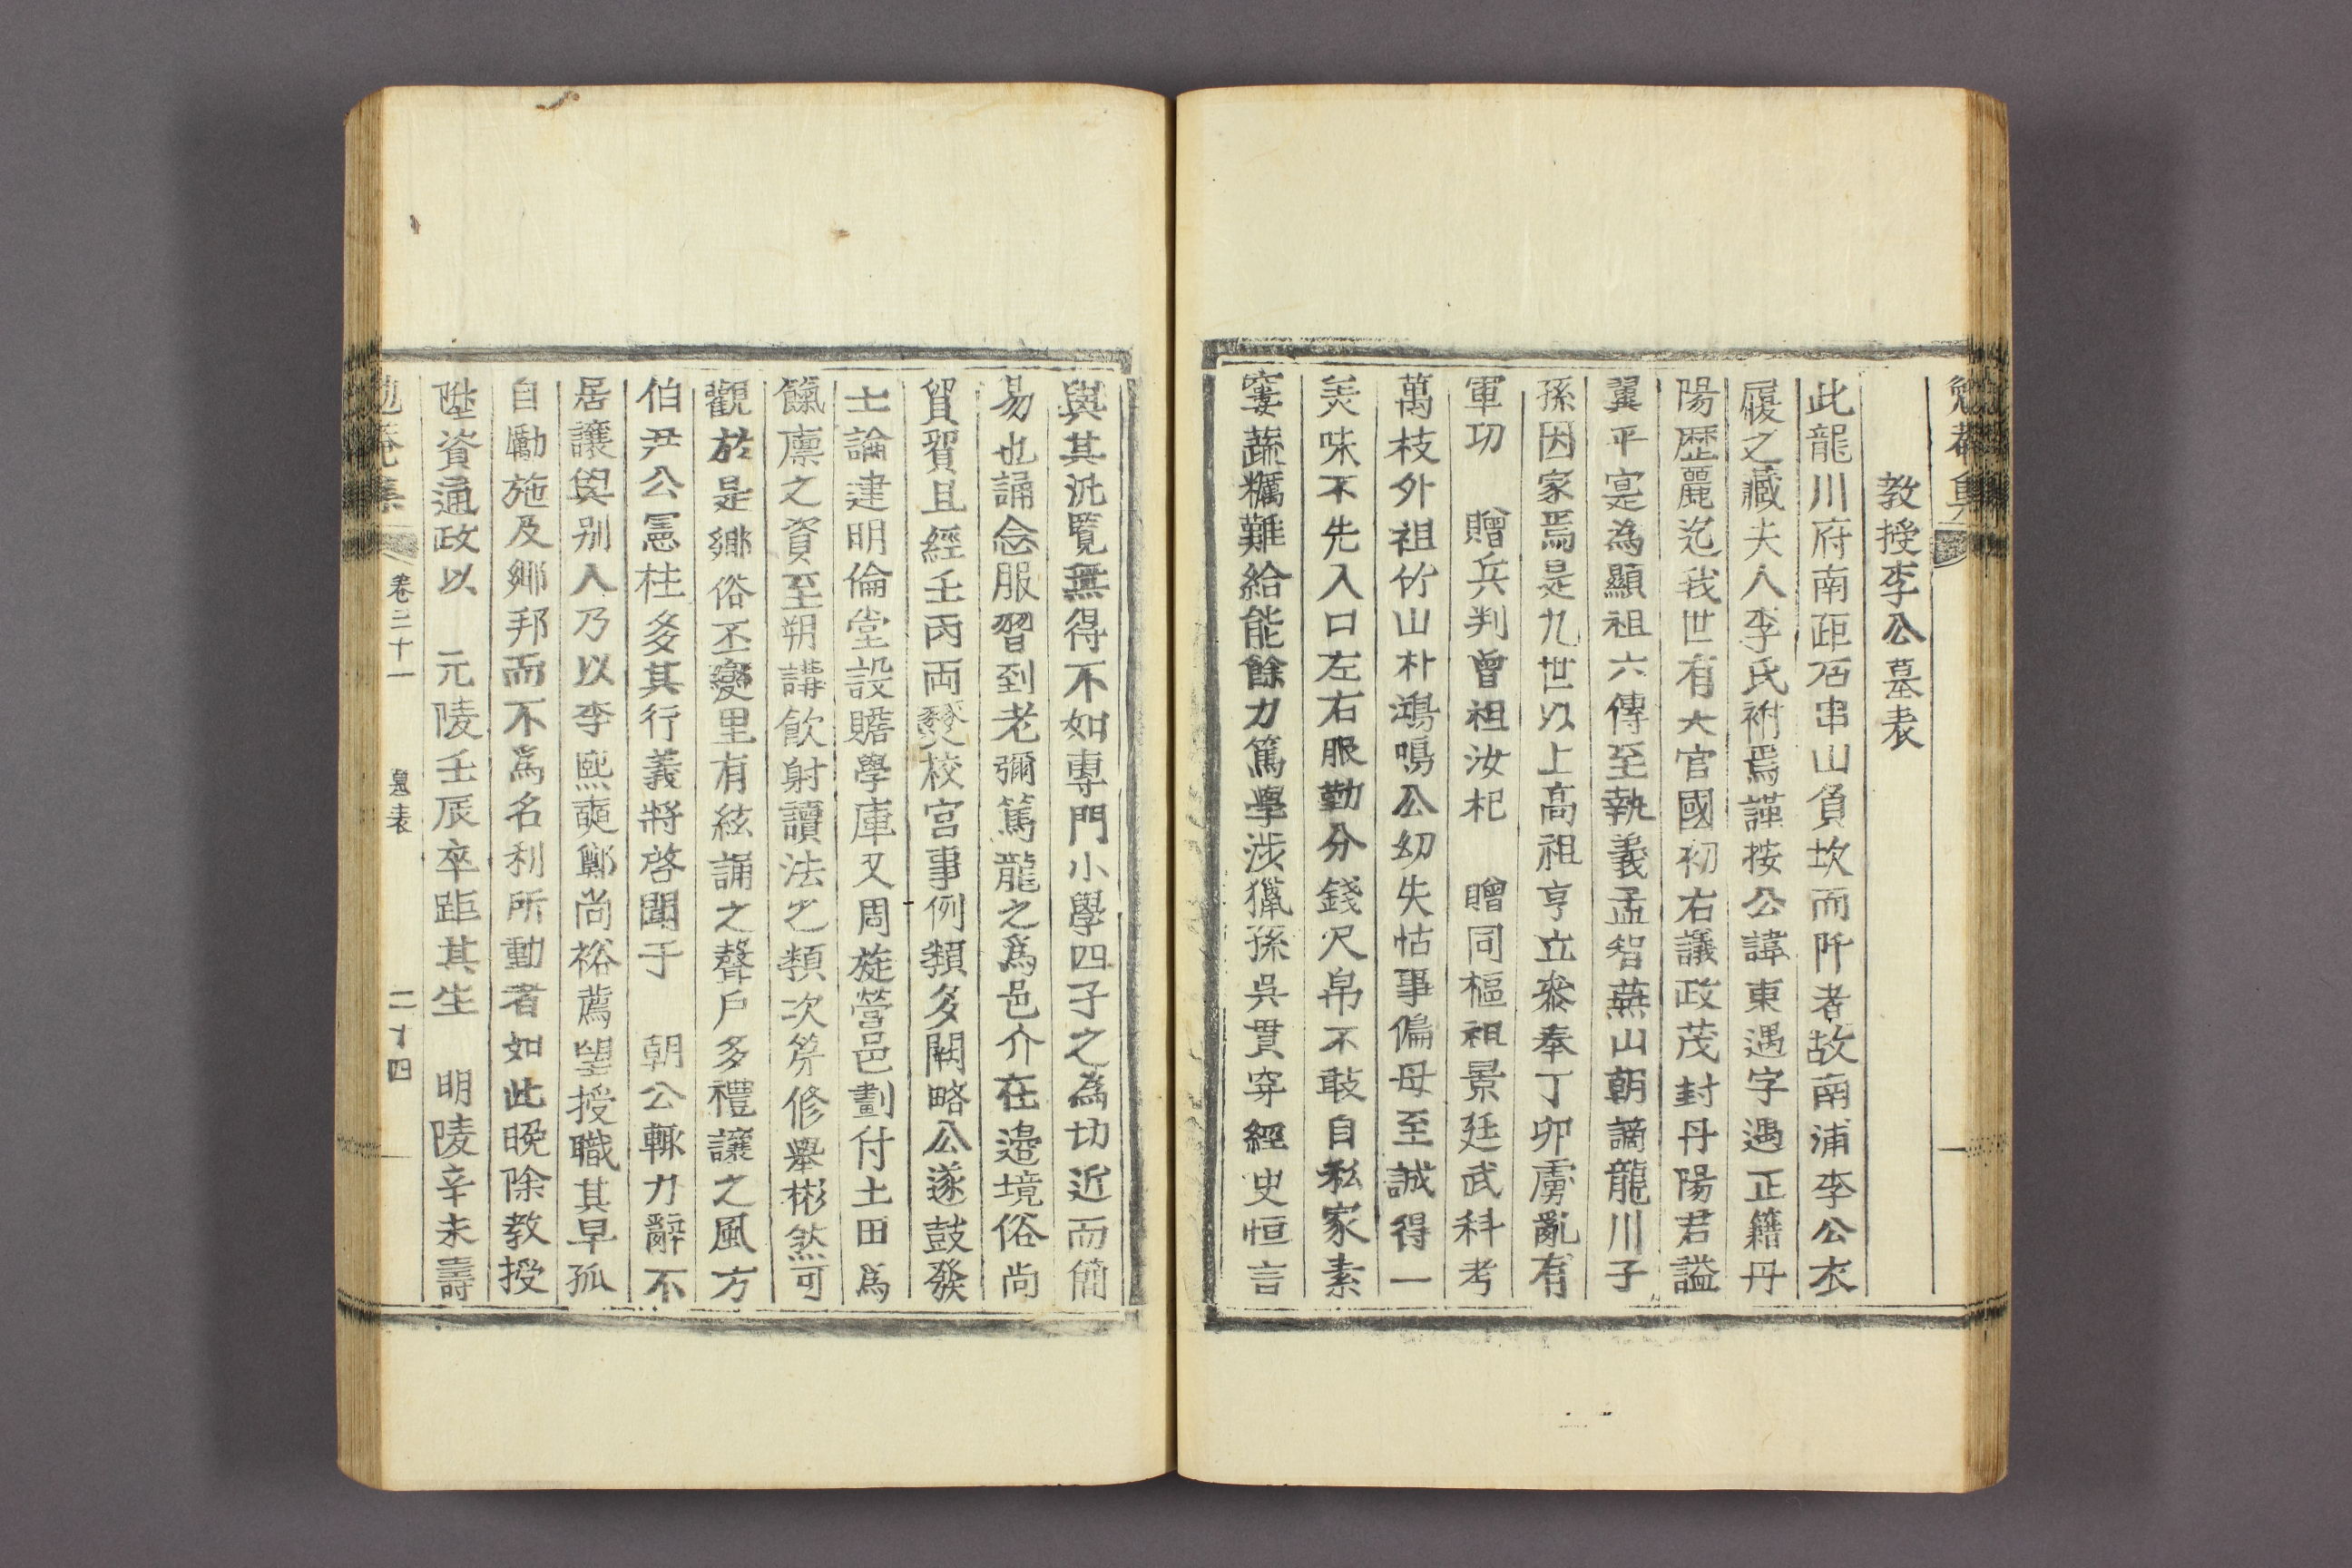 教授李公墓表
此龍川府南距石串山負坎而阡者故南浦李公衣
履之藏夫人李氏祔焉謹按公諱東遇字遇正籍丹
陽歷麗迄我世有大官國初右議政茂封丹陽君謚
翼平寔為顯祖六傳至執義孟智蕪山朝謫龍川子
孫因家焉是九世以上高祖亨立叅奉丁卯虜亂有
軍功 贈兵判曾祖汝杞 贈同樞祖景廷武科考
萬枝外祖竹山朴鴻鳴公幼失怙事偏母至誠得一
羙味不先入口左右服勤分錢尺帛不敢自私家素
窶蔬糲難給能餘力篤學涉獵孫吳貫穿經史恒言
與其汎覽無得不如專門小學四子之為切近而簡
易也誦念服習到老彌篤龍之爲邑介在邉境俗尚
貿貿且經壬丙両燹校宮事例頪多闕略公遂鼓發
士論建明倫堂設贍學庫又周旋營邑劃付土田爲
餼廪之資至朔講飮射讀法之類次第修舉彬然可
觀於是鄉俗丕變里有絃誦之聲戶多禮讓之風方
伯尹公憲柱多其行義將啓聞于 朝公輙力辭不
居讓與別人乃以李熙奭鄭尚裕薦望授職其早孤
自勵施及鄉邦而不爲名利所動者如此晚除教授
陞資通政以 元陵壬辰卒距其生 明陵辛未壽
卷三十一 墓表 二十四